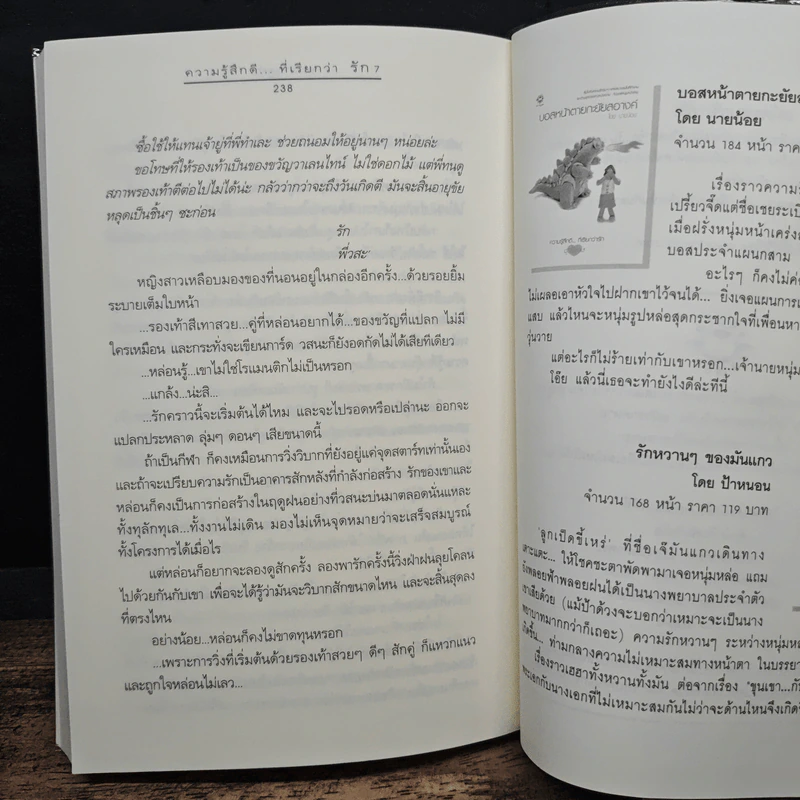 ความรู้สึกดี... ที่เรียกว่า รัก 7
238
ซื้อใช้ให้แทนเจ้าคู่ที่พี่ทำเละ ช่วยถนอมให้อยู่นานๆ หน่อยล่ะ
ขอโทษที่ให้รองเท้าเป็นของขวัญวาเลนไทน์ ไม่ใช่ดอกไม้ แต่พี่ทนดู
สภาพรองเท้าตีต่อไปไม่ได้น่ะ กลัวว่ากว่าจะถึงวันเกิดตี มันจะสิ้นอายุขัย
หลุดเป็นชิ้นๆ ซะก่อน
รัก
พี่วสะ
หญิงสาวเหลือบมองของที่นอนอยู่ในกล่องอีกครั้ง...ด้วยรอยยิ้ม
ระบายเต็มใบหน้า
...รองเท้าสีเทาสวย...คู่ที่หล่อนอยากได้...ของขวัญที่แปลก ไม่มี
ใครเหมือน และกระทั่งจะเขียนการ์ด วสนะก็ยังอดกัดไม่ได้เสียทีเดียว
...หล่อนรู้...เขาไม่ใช่โรแมนติกไม่เป็นหรอก
...แกล้ง...น่ะสิ
...รักคราวนี้จะเริ่มต้นได้ไหม และจะไปรอดหรือเปล่านะ ออกจะ
แปลกประหลาด ลุ่มๆ ดอนๆ เสียขนาดนี้
ถ้าเป็นกีฬา ก็คงเหมือนการวิ่งวิบากที่ยังอยู่แค่จุดสตาร์ทเท่านั้นเอง
และถ้าจะเปรียบความรักเป็นอาคารสักหลังที่กำลังก่อสร้าง รักของเขาและ
หล่อนก็คงเป็นการก่อสร้างในฤดูฝนอย่างที่วสนะบ่นมาตลอดนั่นแหละ
ทั้งทุลักทุเล...ทั้งงานไม่เดิน มองไม่เห็นจุดหมายว่าจะเสร็จสมบูรณ์
ทั้งโครงการได้เมื่อไร
แต่หล่อนก็อยากจะลองดูสักครั้ง ลองพารักครั้งนี้วิ่งฝ่าฝนลุยโคลน
ไปด้วยกันกับเขา เพื่อจะได้รู้ว่ามันจะวิบากสักขนาดไหน และจะสิ้นสุดลง
ที่ตรงไหน
อย่างน้อย...หล่อนก็คงไม่ขาดทุนหรอก
...เพราะการวิ่งที่เริ่มต้นด้วยรองเท้าสวยๆ ดีๆ สักคู่ ก็แหวกแนว
และถูกใจหล่อนไม่เลว...
บอสหน้าตายกะยัยลอางค์
บอสหน้าตายกะยัยล
โดย นายน้อย
จำนวน 184 หน้า ราคา
เรื่องราวความร
เปรี้ยวจี๊ดแต่ชื่อเชยระเบิ
เมื่อฝรั่งหนุ่มหน้าเคร่งด
บอสประจำแผนกสาม
อะไรๆ ก็คงไม่ค่
ไม่เผลอเอาหัวใจไปฝากเขาไว้จนได้... ยิ่งเจอแผนการเ
แสบ แล้วไหนจะหนุ่มรูปหล่อสุดกระชากใจที่เพื่อนหา
วุ่นวาย
แต่อะไรก็ไม่ร้ายเท่ากับเขาหรอก...เจ้านายหนุ่ม
โอ๊ย แล้วนี่เธอจะทำยังไงดีล่ะทีนี้
รักหวานๆ ของมันแกว
โดย ป้าหนอน
จำนวน 168 หน้า ราคา 119 บาท
'ลูกเป็ดขี้เหร่' ที่ชื่อเจ๊มันแกวเดินทาง
เตาะแตะ... ให้โชคชะตาพัดพามาเจอหนุ่มหล่อ แถม
ยังพลอยฟ้าพลอยฝนได้เป็นนางพยาบาลประจำตัว
เขาเสียด้วย (แม้ป้าดวงจะบอกว่าเหมาะจะเป็นนาง
พยาบาทมากกว่าก็เถอะ) ความรักหวานๆ ระหว่างหนุ่มหล
เกิดขึ้น... ท่ามกลางความไม่เหมาะสมทางหน้าตา ในบรรยา
เรื่องราวเฮฮาทั้งหวานทั้งมัน ต่อจากเรื่อง 'ขุนเขา...กั
พระเอกกับนางเอกที่ไม่เหมาะสมกันไม่ว่าจะด้านไหนจึงเกิดขึ